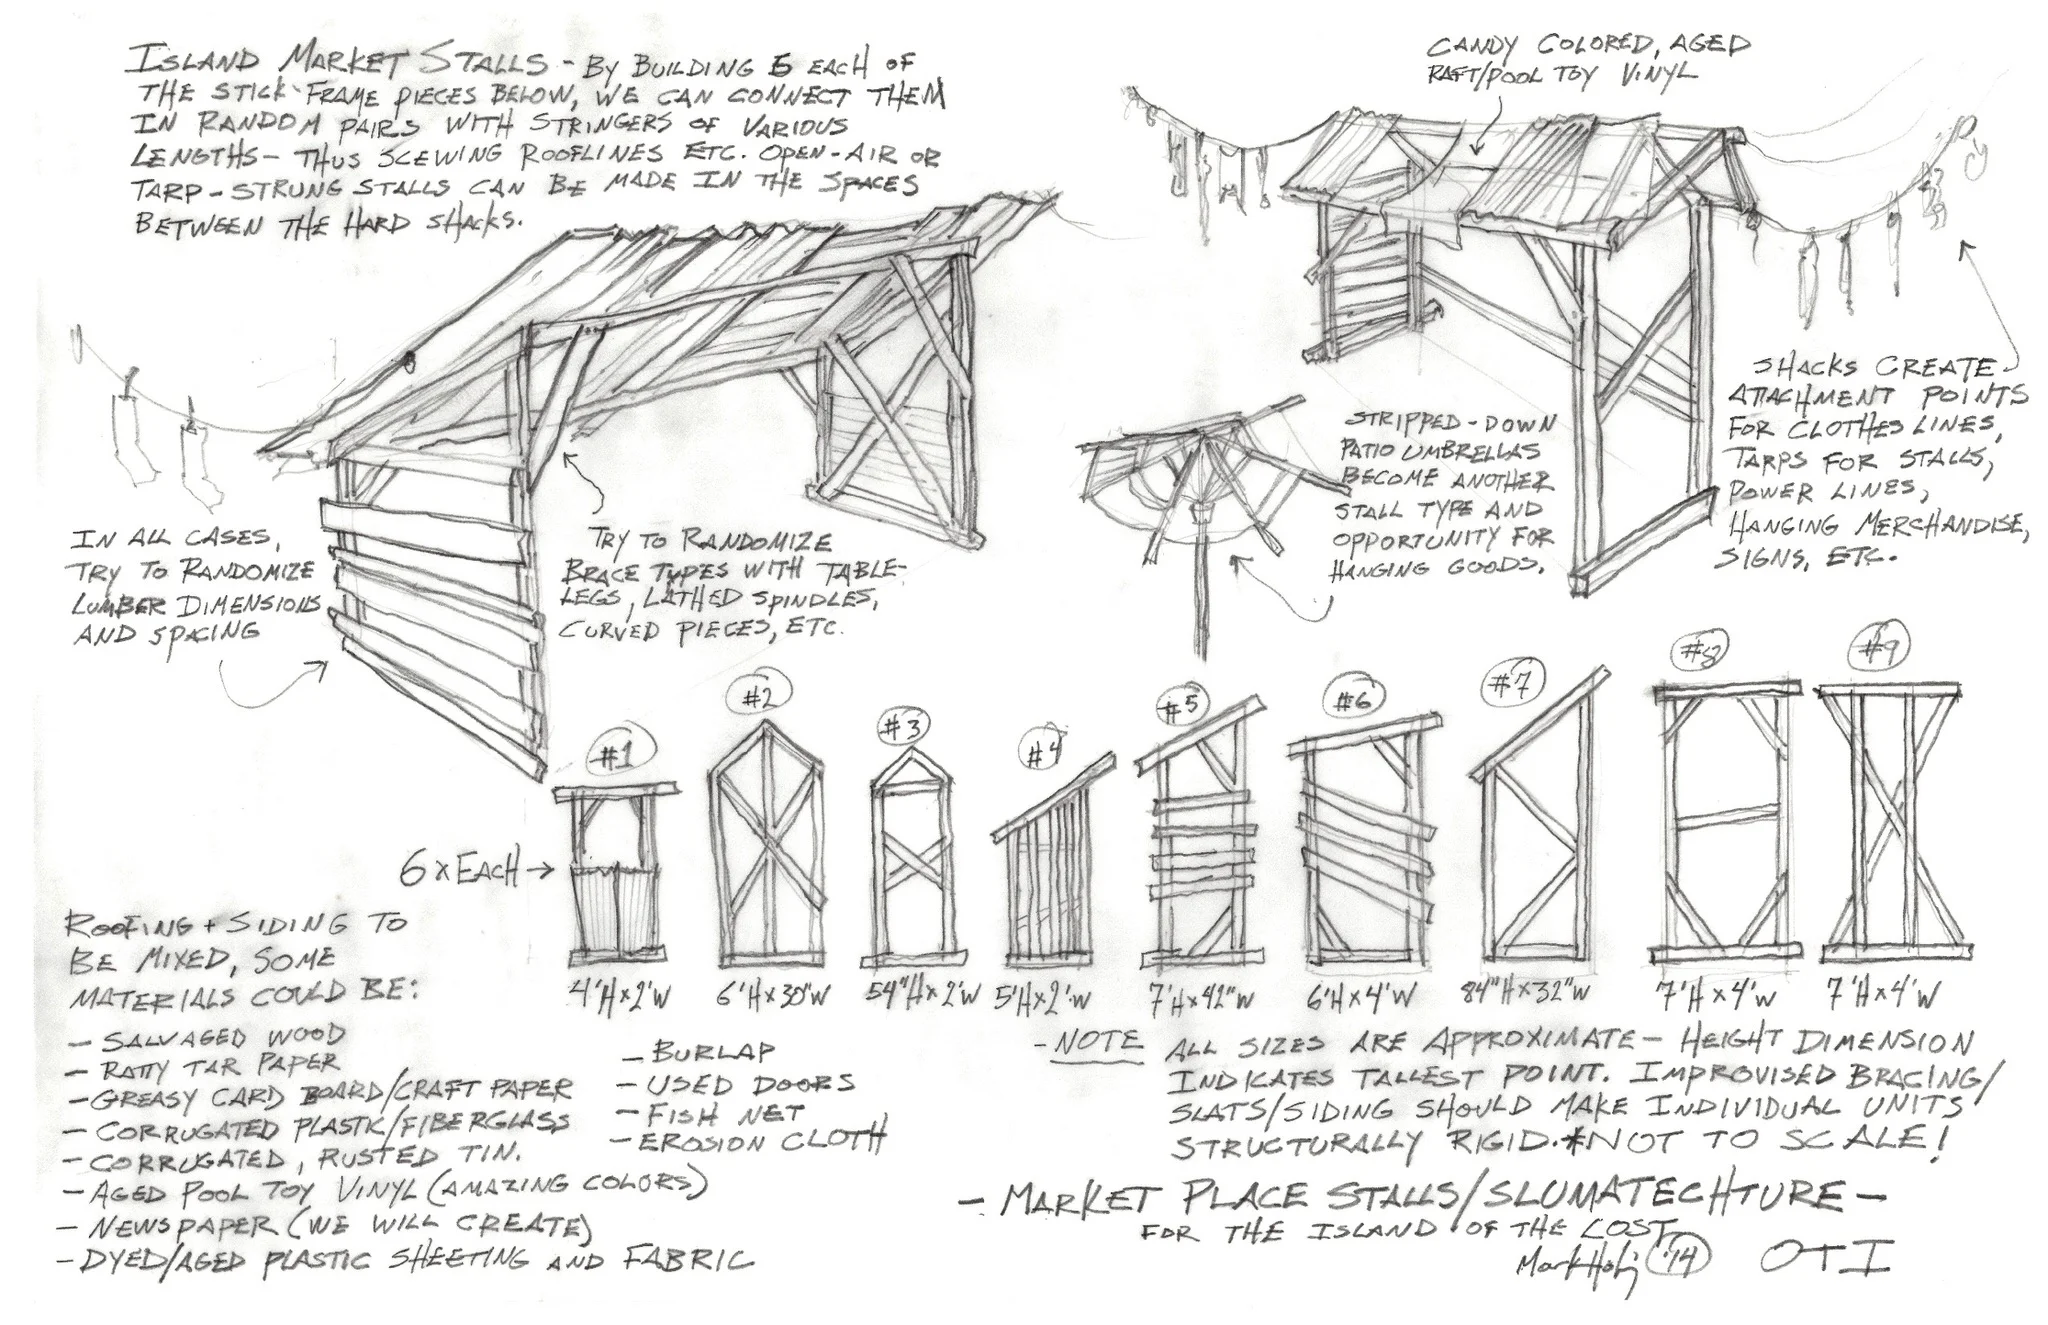 ISLAND MARKET STALLS - BY BUILDING 6 EACH OF
THE STICK-FRAME PIECES BELOW, WE CAN CONNECT THEM
IN RANDOM PAIRS WITH STRINGERS OF VARIOUS
LENGTHS - THUS SCEWING ROOFLINES ETC. OPEN-AIR OR
TARP-STRUNG STALLS CAN BE MADE IN THE SPACES
BETWEEN THE HARD SHACKS.
CANDY COLORED, AGED
RAFT/POOL TOY VINYL
SHACKS CREATE
ATTACHMENT POINTS
FOR CLOTHES LINES,
TARPS FOR STALLS,
POWER LINES,
HANGING MERCHANDISE,
SIGNS, ETC.
STRIPPED-DOWN
PATIO UMBRELLAS
BECOME ANOTHER
STALL TYPE AND
OPPORTUNITY FOR
HANGING GOODS.
IN ALL CASES,
TRY TO RANDOMIZE
LUMBER DIMENSIONS
AND SPACING
TRY TO RANDOMIZE
BRACE TYPES WITH TABLE-
LEGS, LATHED SPINDLES,
CURVED PIECES, ETC.
#1
#2
#3
#4
#5
#6
#7
#8
#9
6 x EACH →
4'H x 2'W
6'H x 30"W
54"H x 2'W
5'H x 2'W
7'H x 42"W
6'H x 4'W
84"H x 32"W
7'H x 4'W
7'H x 4'W
ROOFING + SIDING TO
BE MIXED, SOME
MATERIALS COULD BE:
- SALVAGED WOOD
- RATTY TAR PAPER
- GREASY CARD BOARD/CRAFT PAPER
- CORRUGATED PLASTIC/FIBERGLASS
- CORRUGATED, RUSTED TIN.
- AGED POOL TOY VINYL (AMAZING COLORS)
- NEWSPAPER (WE WILL CREATE)
- DYED/AGED PLASTIC SHEETING AND FABRIC
- BURLAP
- USED DOORS
- FISH NET
- EROSION CLOTH
- NOTE ALL SIZES ARE APPROXIMATE - HEIGHT DIMENSION
INDICATES TALLEST POINT. IMPROVISED BRACING/
SLATS/SIDING SHOULD MAKE INDIVIDUAL UNITS
STRUCTURALLY RIGID. *NOT TO SCALE!
- MARKET PLACE STALLS/SLUMATECHTURE -
FOR THE ISLAND OF THE LOST
Mark '14 OTI